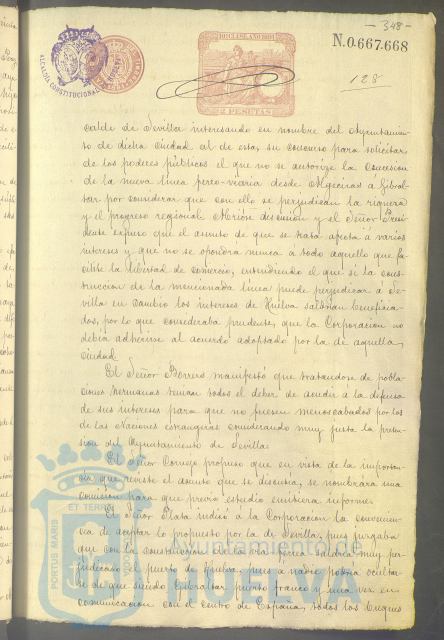 - 348 -
N.0.667.668
128
ALCALDIA CONSTITUCIONAL
2 PESETAS
calde de Sevilla interesando en nombre del Ayuntamien-
to de dicha Ciudad al de esta, su concurso para solicitar
de los poderes públicos el que no se autorize la concesion
de la nueva línea ferro-viaria desde Algeciras a Gibral-
tar por considerar que con ello se perjudican la riqueza
y el progreso regional. Abrióse discusión y el Señor Presi-
dente expuso que el asunto de que se trata afecta á varios
intereses y que no se opondría nunca a todo aquello que fa-
cilite la libertad de comercio, entendiendo el que si la cons-
trucción de la mencionada línea puede perjudicar a Se-
villa en cambio los intereses de Huelva saldrían beneficia-
dos, por lo que consideraba prudente, que la Corporación no
debía adherirse al acuerdo adoptado por la de aquella
Ciudad.
El Señor Borrero manifestó que tratandose de pobla-
ciones hermanas tenían todos el deber de acudir a la defensa
de sus intereses para que no fuesen menoscabados por los
de las Naciones estrangeras considerando muy justa la preten-
sion del Ayuntamiento de Sevilla.
El Señor Cornejo propuso que en vista de la importan-
cia que reviste el asunto que se discutia, se nombrára una
comisión para que previo estudio emitiera informe.
El Señor Plata indicó á la Corporación la convenien-
cia de aceptar lo propuesto por la de Sevilla, pues juzgaba
que con la construcción de la vía ferrea saldría muy per-
judicado el puerto de Huelva, pues a nadie podia ocultar-
se de que siendo Gibraltar puerto franco y una vez en
comunicacion con el centro de España, todos los buques
Ayuntamiento de
HUELVA
PORTUS MARIS
ET TERRAE